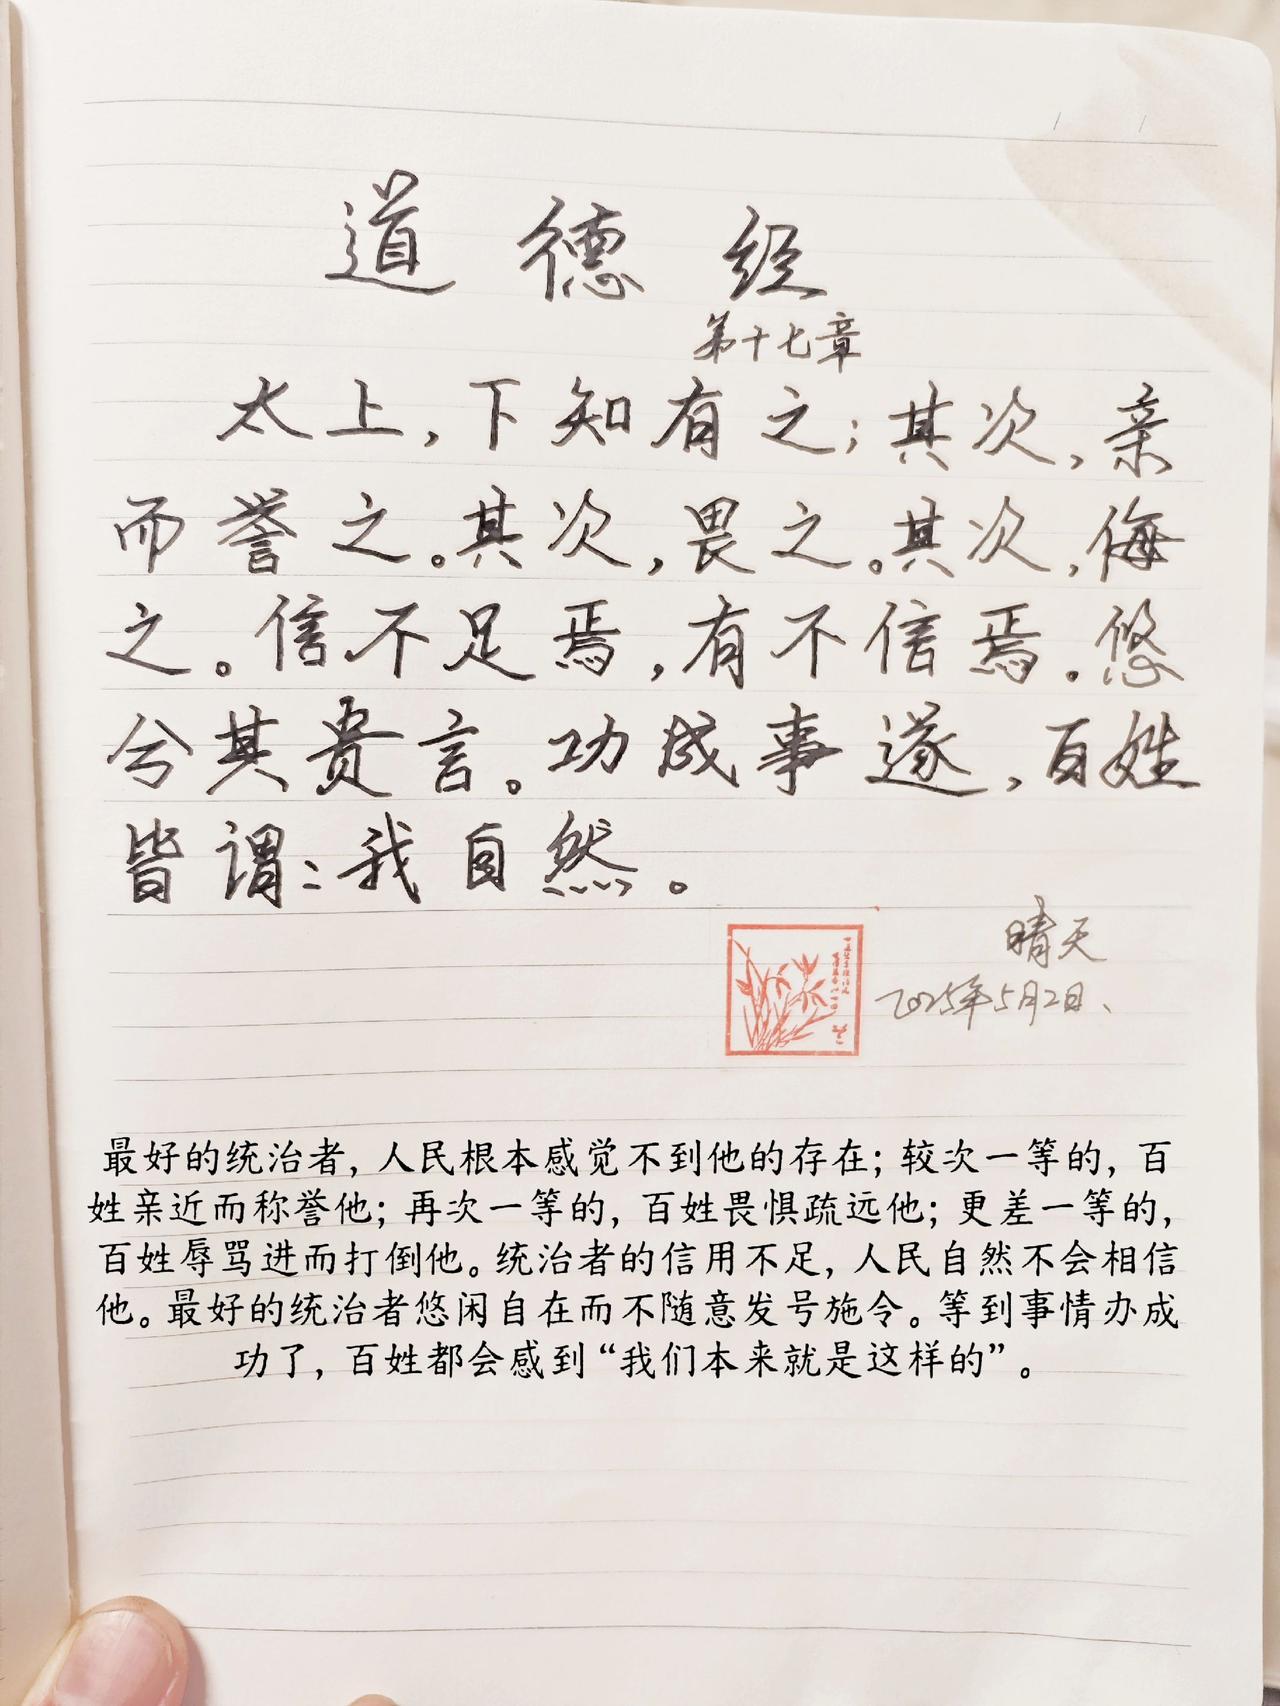 道德经
第十七章
太上，下知有之；其次，亲
而誉之。其次，畏之。其次，侮
之。信不足焉，有不信焉。悠
兮其贵言。功成事遂，百姓
皆谓：我自然。
晴天
2025年5月2日、
最好的统治者，人民根本感觉不到他的存在；较次一等的，百
姓亲近而称誉他；再次一等的，百姓畏惧疏远他；更差一等的，
百姓辱骂进而打倒他。统治者的信用不足，人民自然不会相信
他。最好的统治者悠闲自在而不随意发号施令。等到事情办成
功了，百姓都会感到“我们本来就是这样的”。